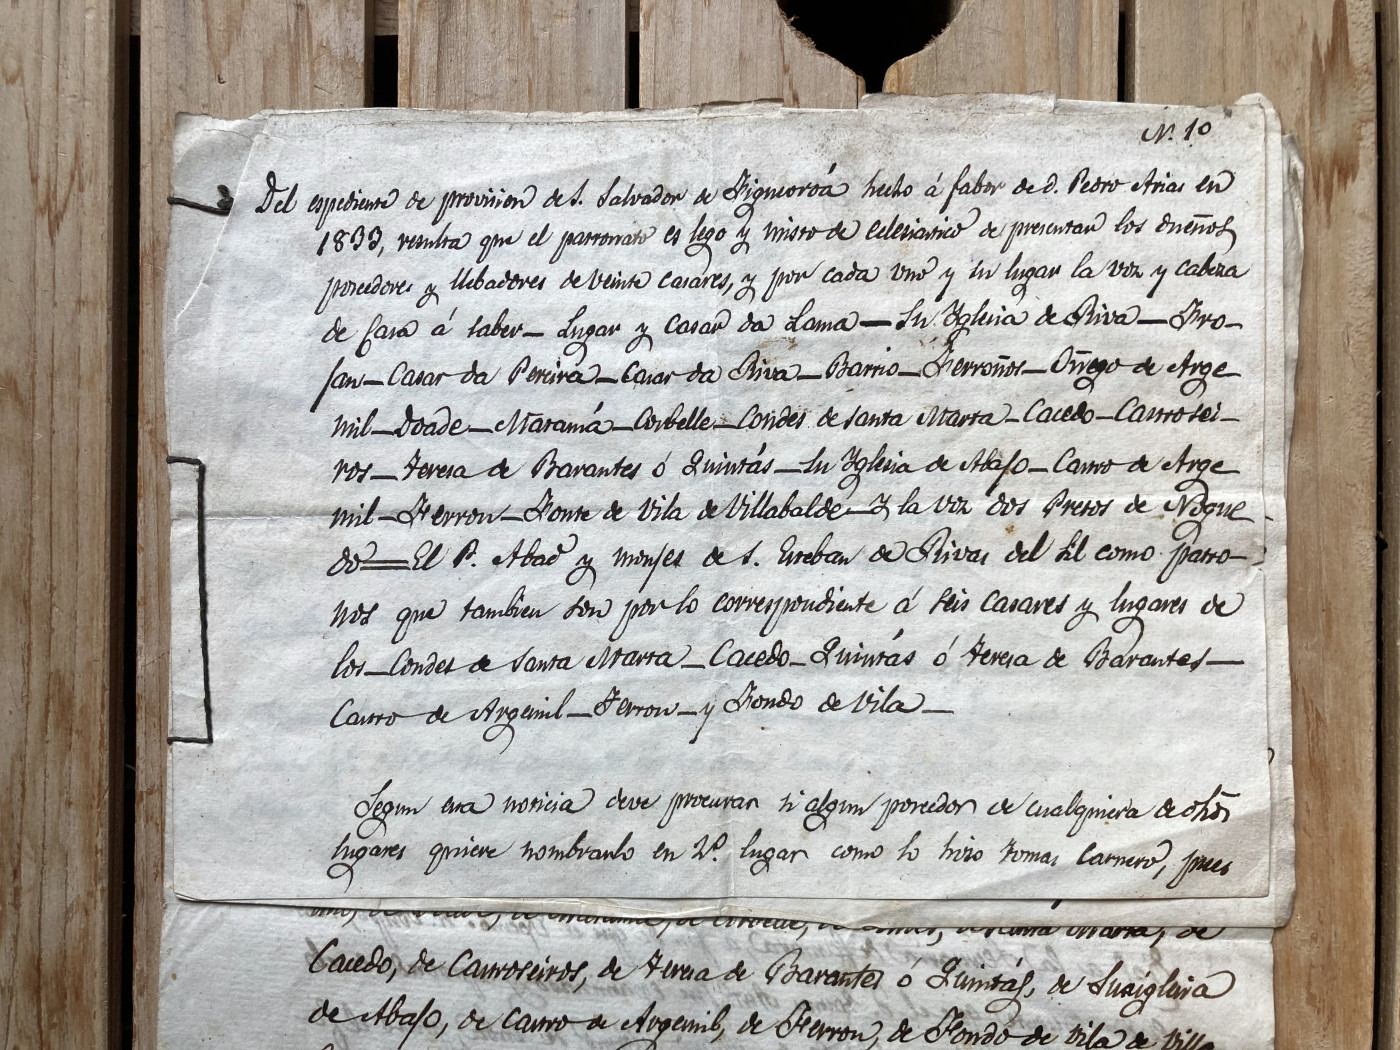 N.º 10
Del espediente de provision de S. Salvador de Figueoroá hecho á fabor de d. Pedro Arias en
1833, resulta que el patronato es lego y misto de eclesiastico de presentar los dueños
poseedores y llebadores de veinte casares, y por cada uno y su lugar la voz y cabeza
de Casa á saber— Lugar y Casar da Lama — Su Yglesia de Riva — Fro-
fan — Casar da Pereira — Casar da Riva — Barrio — Ferroños — Orrego de Arge
mil — Doade — Maramá — Corbelle — Condes de Santa Marta — Cacedo — Castrosei-
ros — Teresa de Barantes ó Quintás — Su Yglesia de Abajo — Castro de Arge
mil — Ferron — Fonte de Vila de Villabalde — Y la voz dos Presos de Nogue-
do — El P. Abad y monjes de S. Esteban de Rivas del Sil como patro-
nos que tambien son por lo correspondiente á seis Casares y lugares de
los — Condes de Santa Marta — Cacedo — Quintás ó Teresa de Barantes —
Castro de Argemil — Ferron — y Fondo de Vila —
Segun esta noticia deve procurar si algun poseedor de cualquiera de dhōs
lugares quiere nombrarlo en 2.º lugar como lo hizo Tomas Carnero, pues
de Santa Marta, de
Cacedo, de Castroseiros, de Teresa de Barantes ó Quintás, de Suaigleira
de Abajo, de Castro de Argemil, de Ferron, de Fondo de Vila de Villa